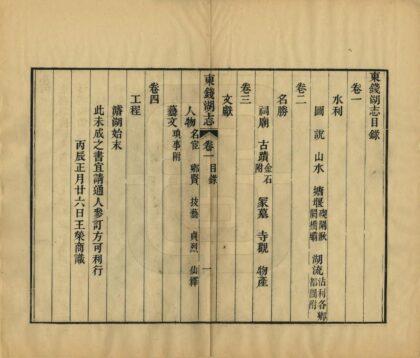 東錢湖志目錄
卷一
水利
圖說 山水 塘堰 湖流沾利各鄉都圖附
卷二
名勝
祠廟 古蹟金石附 冢墓 寺觀 物產
卷三
文獻
東錢湖志 卷一 目錄 一
人物名宦 鄉賢 技藝 貞烈 仙釋
藝文瑣事附
卷四
工程
濬湖始末
此未成之書宜請通人參訂方可刊行
丙辰正月廿六日王榮商識